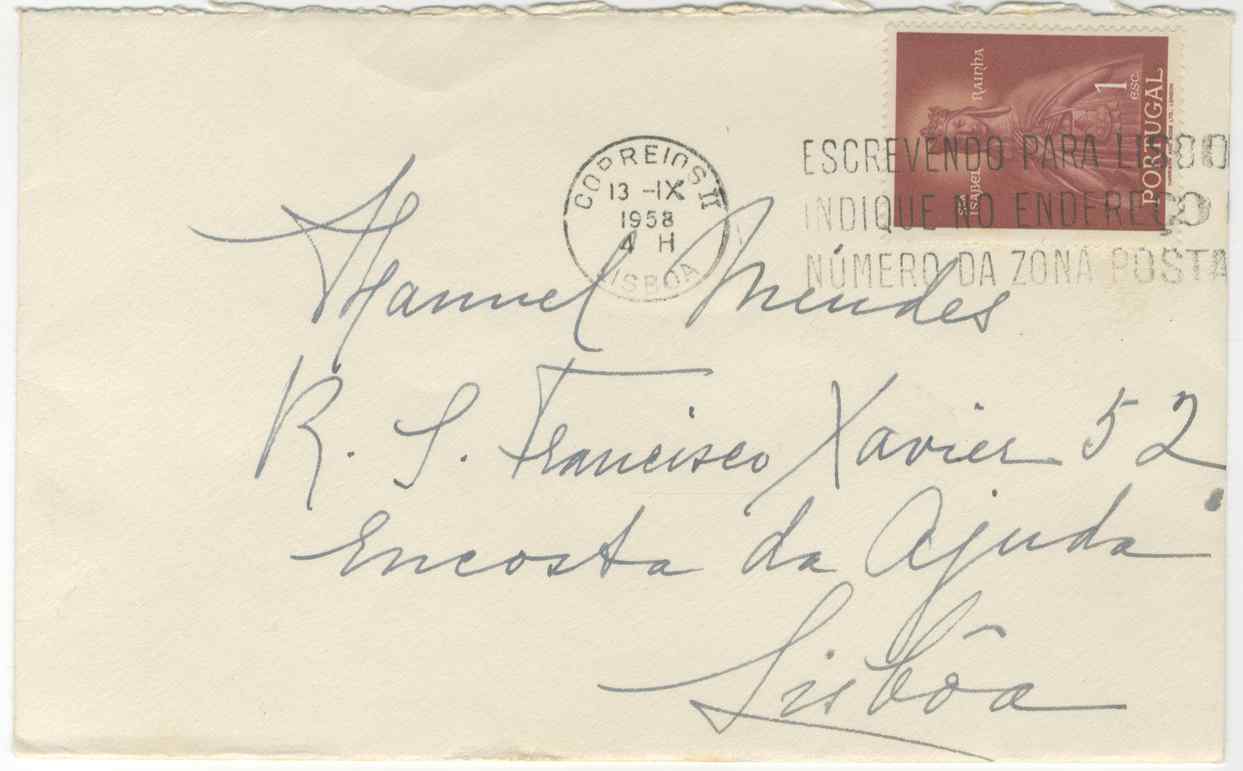 STA ISABEL RAINHA
1 esc.
PORTUGAL
CORREIOS II
13 -IX
1958
4 H
LISBOA
ESCREVENDO PARA
INDIQUE NO ENDEREÇO
NÚMERO DA ZONA POSTA
Manuel Mendes
R. S. Francisco Xavier 52
Encosta da Ajuda
Lisbôa